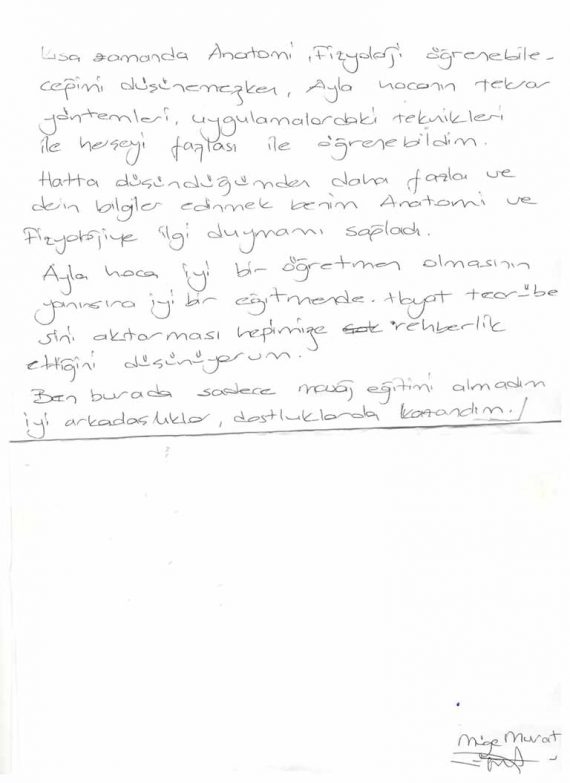 Kısa zamanda Anatomi, Fizyoloji öğrenebile-
ceğimi düşünemezken, Ayla hocanın tekrar
yöntemleri, uygulamalardaki teknikleri
ile herşeyi fazlası ile öğrenebildim.
Hatta düşündüğümden daha fazla ve
derin bilgiler edinmek benim Anatomi ve
Fizyolojiye ilgi duymamı sağladı.
Ayla hoca iyi bir öğretmen olmasının
yanısıra iyi bir eğitmende. Hayat tecrübe
sini aktarması hepimize rehberlik
ettiğini düşünüyorum.
Ben burada sadece masaj eğitimi almadım
iyi arkadaşlıklar, dostluklarda kazandım.
Müge Murat